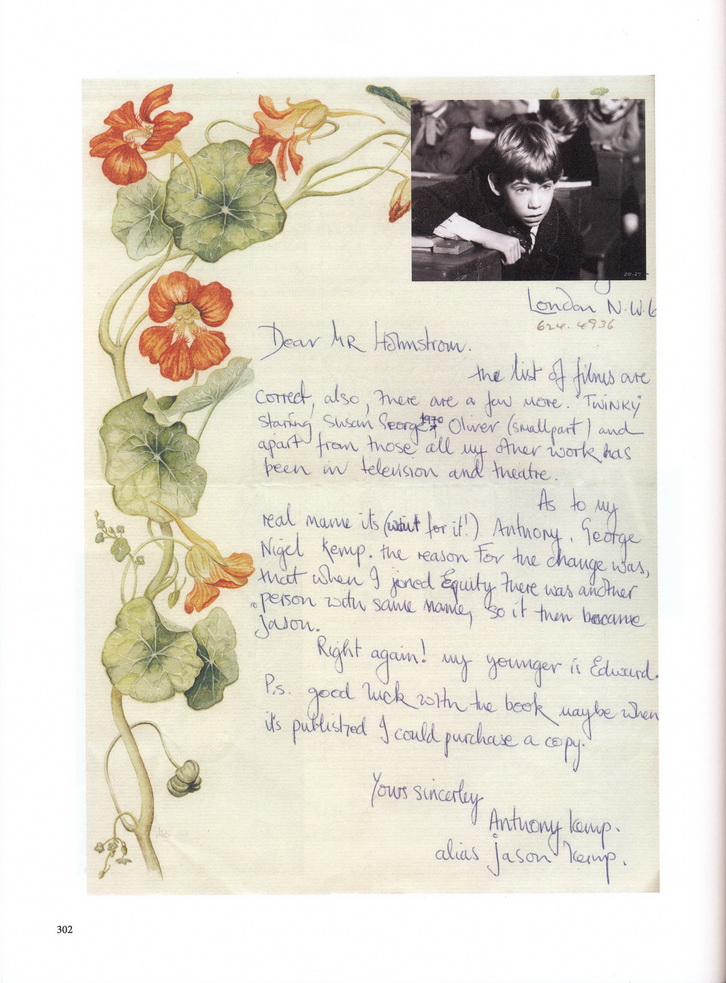 London N.W.6
624.4936
Dear MR Holmstrom.
the list of films are
correct, also, there are a few more. "TWINKY"
staring Susan George 1970 Oliver (smallpart) and
apart from those all my other work has
been in television and theatre.
As to my
real name its (wait for it!) Anthony. George
Nigel Kemp. the reason For the change was,
that when I joned Equity there was another
person with same name, so it then became
Jason.
Right again! my younger is Edward.
P.s. good luck with the book maybe when
it's published I could purchase a copy.
Yours sincerley
Anthony Kemp.
alias Jason Kemp.
302